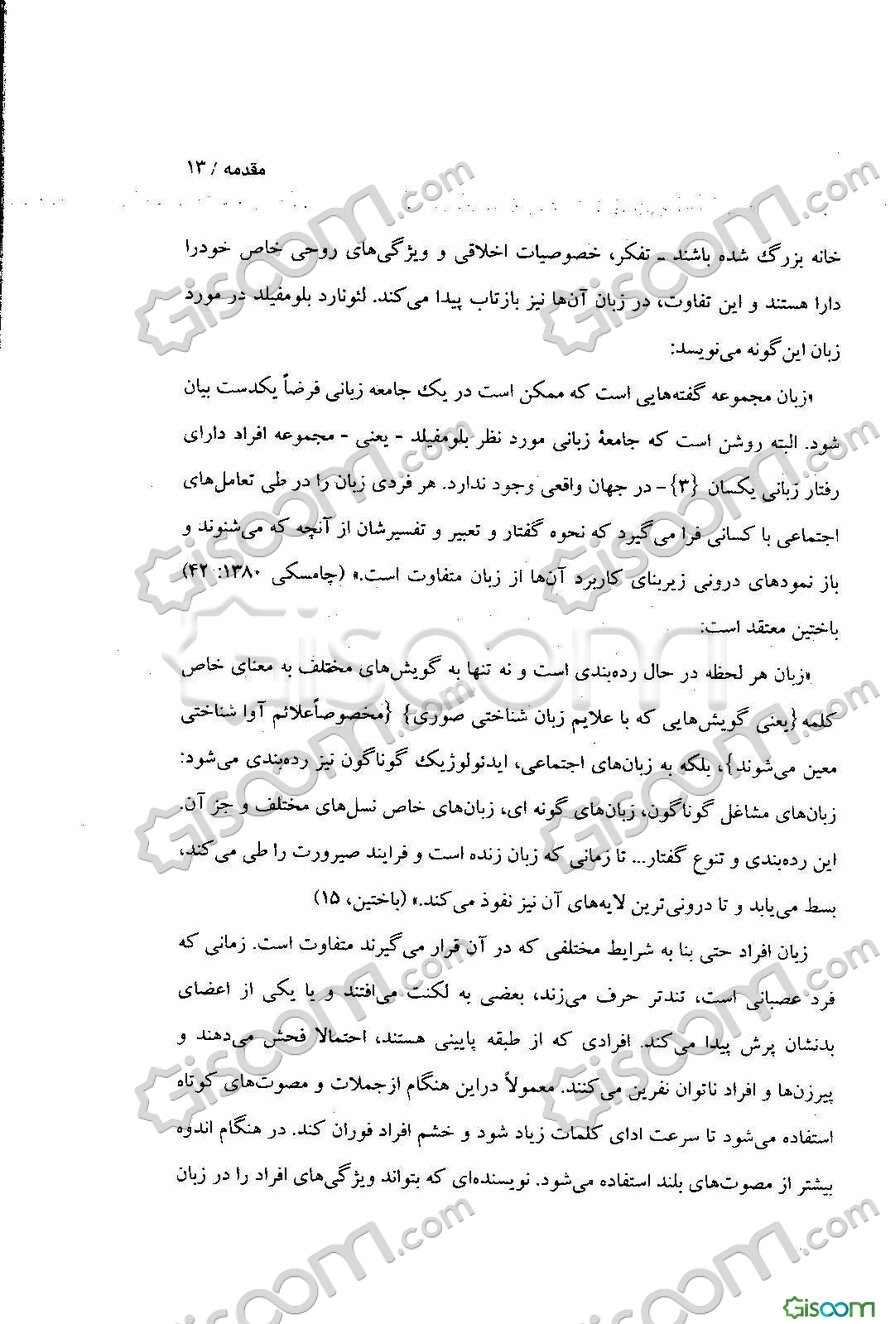 مقدمه / ۱۳
خانه بزرگ شده باشند - تفکر، خصوصیات اخلاقی و ویژگی‌های روحی خاص خودرا
دارا هستند و این تفاوت، در زبان آن‌ها نیز بازتاب پیدا می‌کند. لئونارد بلومفیلد در مورد
زبان این‌گونه می‌نویسد:
«زبان مجموعه گفته‌هایی است که ممکن است در یک جامعه زبانی فرضاً یکدست بیان
شود. البته روشن است که جامعهٔ زبانی مورد نظر بلومفیلد - یعنی - مجموعه افراد دارای
رفتار زبانی یکسان {۳}- در جهان واقعی وجود ندارد. هر فردی زبان را در طی تعامل‌های
اجتماعی با کسانی فرا می‌گیرد که نحوه گفتار و تعبیر و تفسیرشان از آنچه که می‌شنوند و
باز نمودهای درونی زیربنای کاربرد آن‌ها از زبان متفاوت است.» (چامسکی ۱۳۸۰: ۴۲)
باختین معتقد است:
«زبان هر لحظه در حال رده‌بندی است و نه تنها به گویش‌های مختلف به معنای خاص
کلمه {یعنی گویش‌هایی که با علایم زبان شناختی صوری} {مخصوصاًعلائم آوا شناختی
معین می‌شوند}، بلکه به زبان‌های اجتماعی، ایدئولوژیک گوناگون نیز رده‌بندی می‌شود:
زبان‌های مشاغل گوناگون، زبان‌های گونه ای، زبان‌های خاص نسل‌های مختلف و جز آن.
این رده‌بندی و تنوع گفتار... تا زمانی که زبان زنده است و فرایند صیرورت را طی می‌کند،
بسط می‌یابد و تا درونی‌ترین لایه‌های آن نیز نفوذ می‌کند.» (باختین، ۱۵)
زبان افراد حتی بنا به شرایط مختلفی که در آن قرار می‌گیرند متفاوت است. زمانی که
فرد عصبانی است، تندتر حرف می‌زند، بعضی به لکنت می‌افتند و یا یکی از اعضای
بدنشان پرش پیدا می‌کند. افرادی که از طبقه پایینی هستند، احتمالا فحش می‌دهند و
پیرزن‌ها و افراد ناتوان نفرین می‌کنند. معمولاً دراین هنگام ازجملات و مصوت‌های کوتاه
استفاده می‌شود تا سرعت ادای کلمات زیاد شود و خشم افراد فوران کند. در هنگام اندوه
بیشتر از مصوت‌های بلند استفاده می‌شود. نویسنده‌ای که بتواند ویژگی‌های افراد را در زبان
Gisoom.com
Gisoom
GISOOM